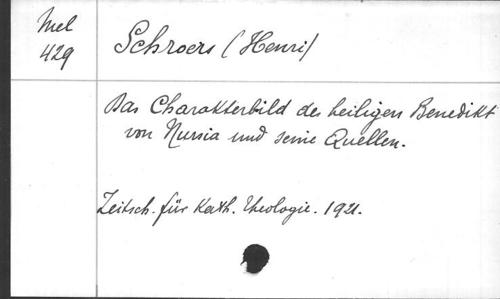 Mel
429
Schroers (Henri)
Das Charakterbild des heiligen Benedikt
von Nursia und seine Quellen.
Zeitsch. für Kath. Theologie. 1921.